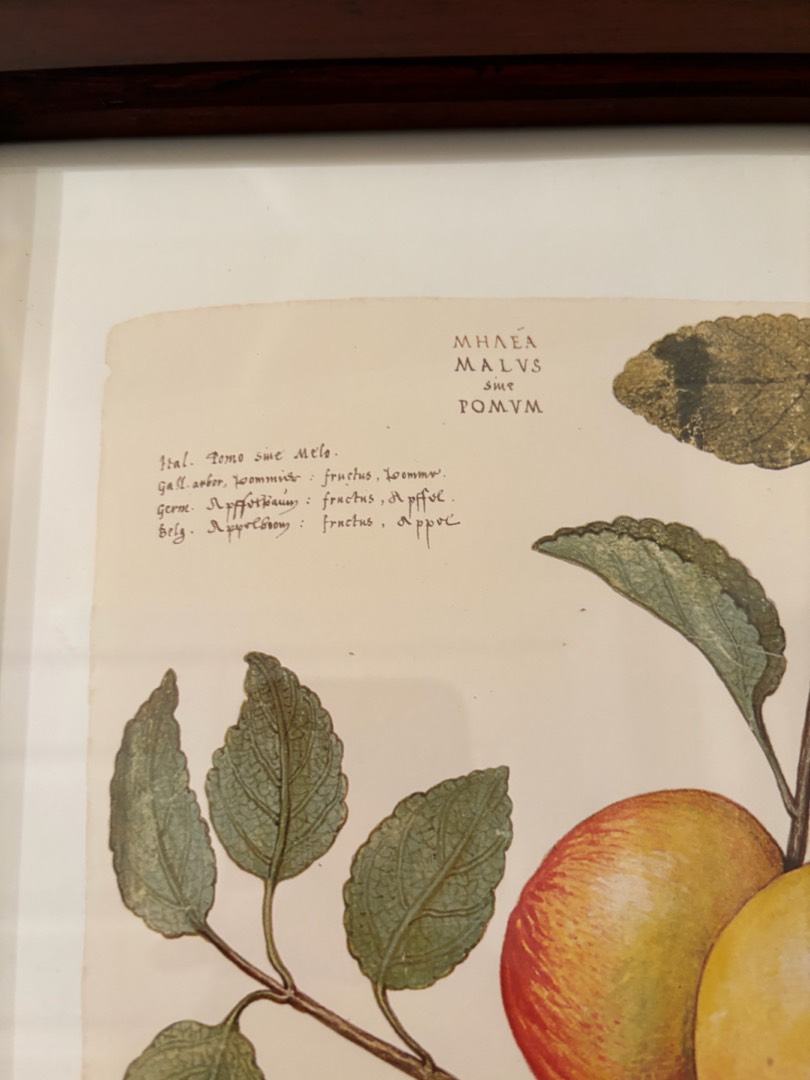 ΜΗΛΈΑ
MALVS
siue
POMVM
Ital. Pomo siue Melo.
Gall. arbor, pommier : fructus, pomme.
Germ. Apffelbaum : fructus, Apffel.
Belg. Appelboom : fructus, Appel